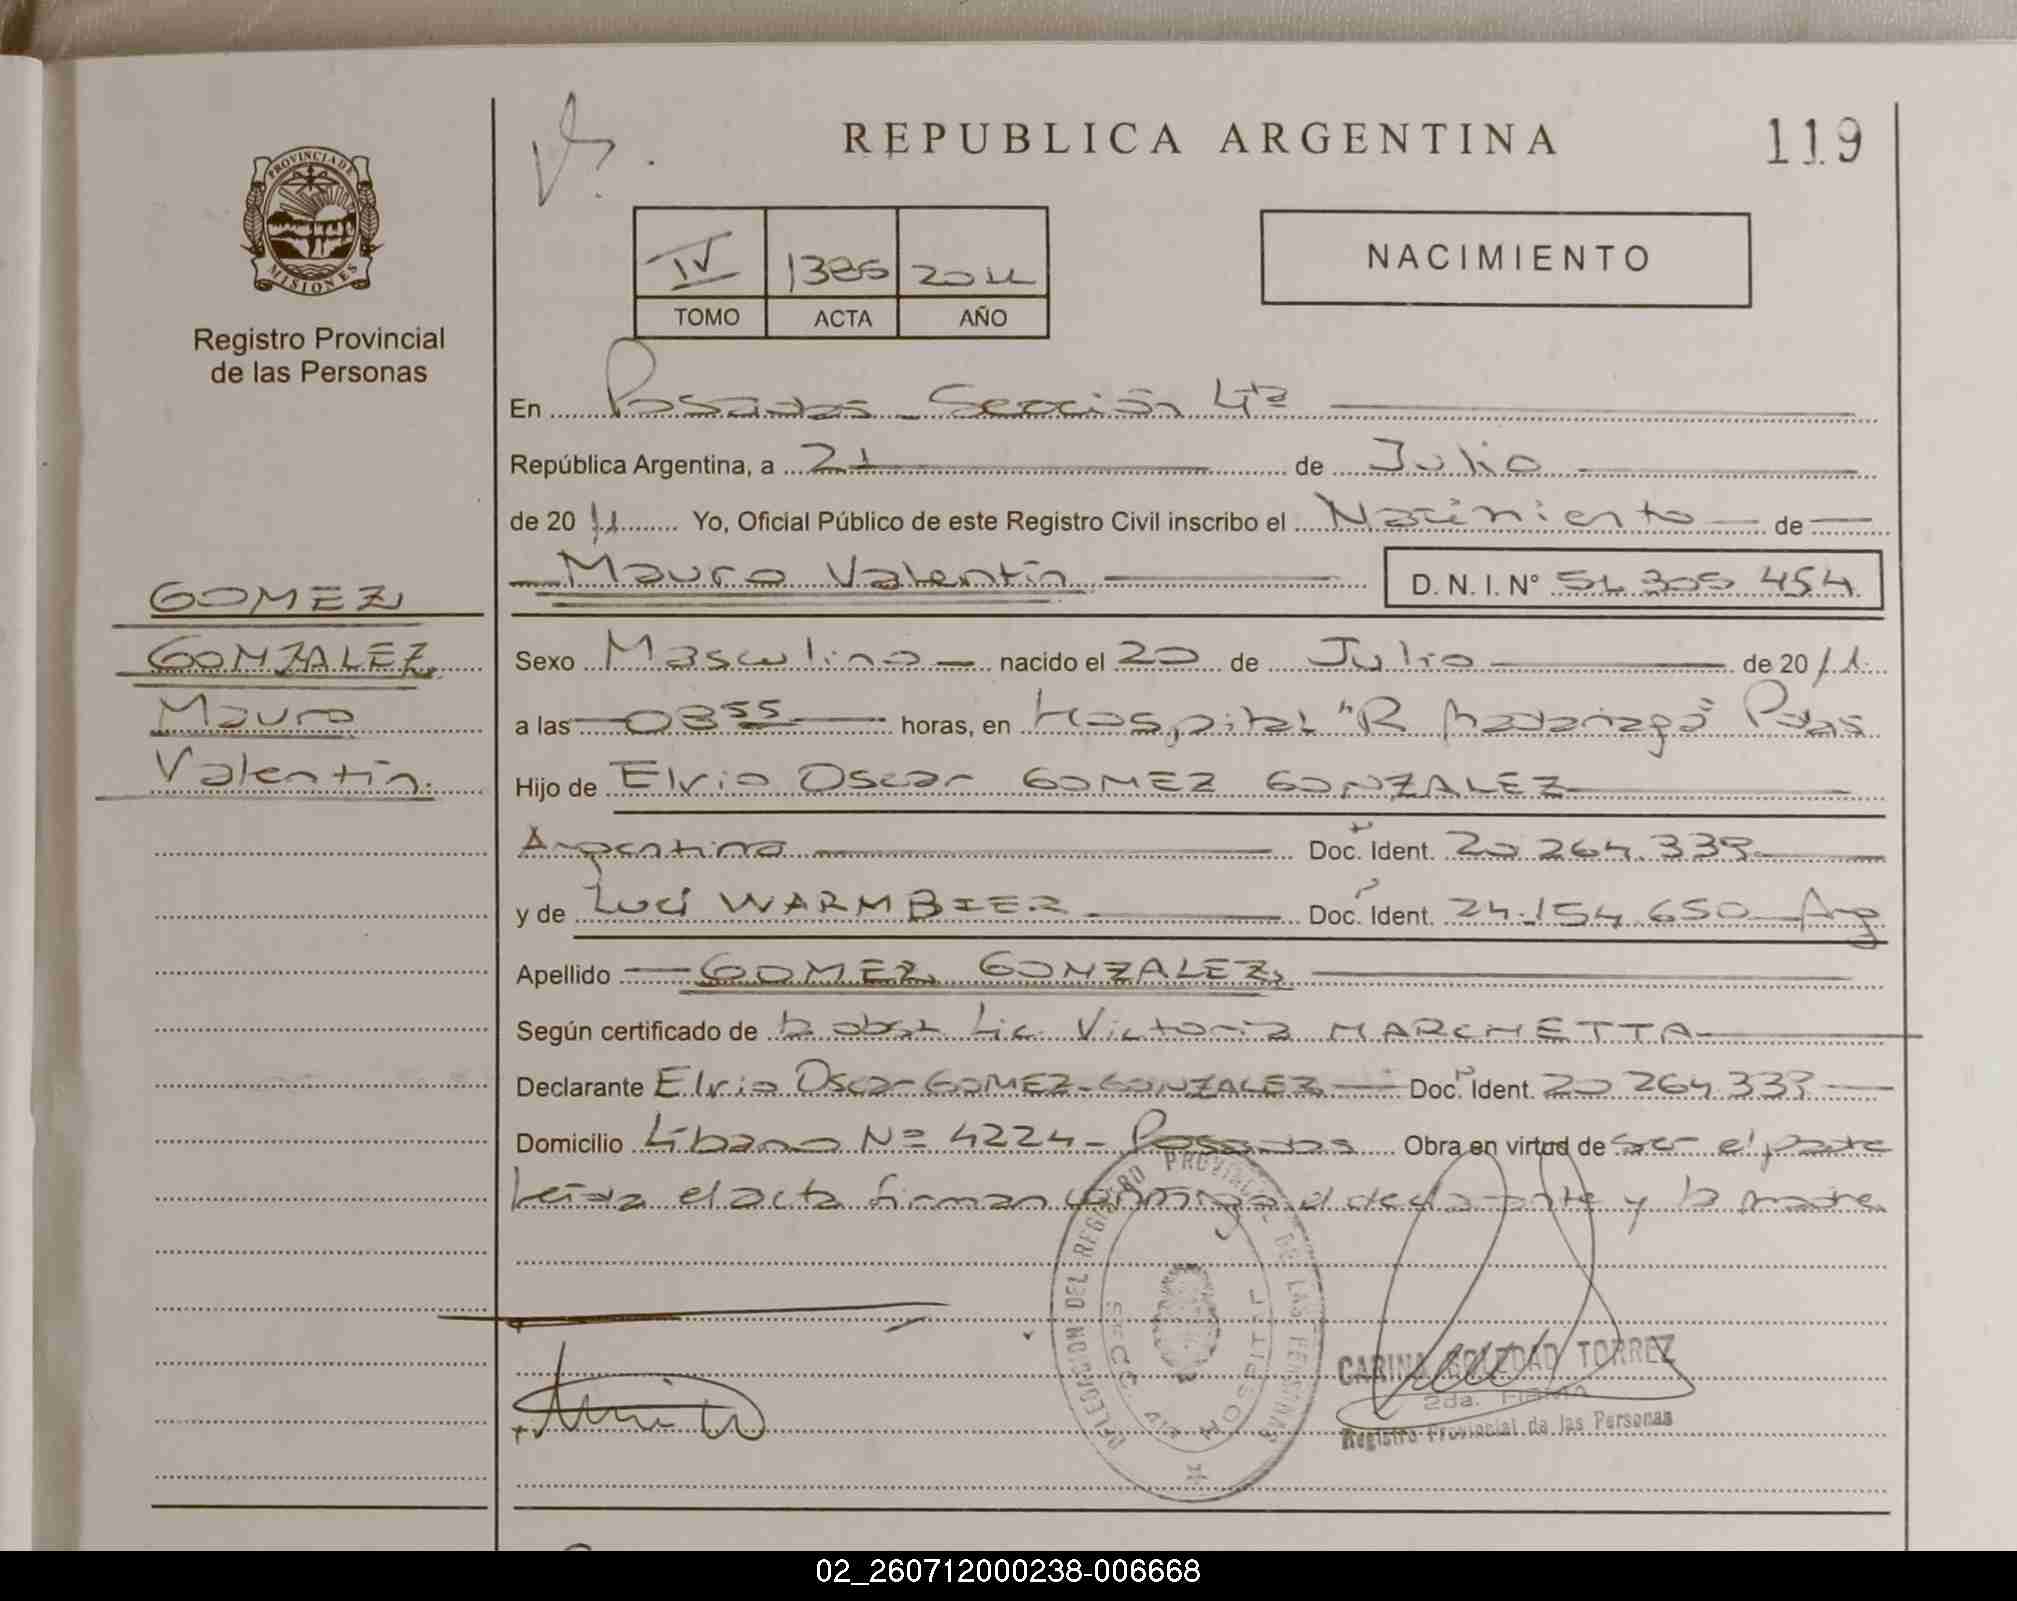 REPUBLICA ARGENTINA
119
PROVINCIA DE MISIONES
Registro Provincial
de las Personas
IV 1386 2011
TOMO ACTA AÑO
NACIMIENTO
En Posadas - Sección 4ta
República Argentina, a 21 de Julio
de 2011 Yo, Oficial Público de este Registro Civil inscribo el Nacimiento de
Mauro Valentín D.N.I. N° 51 305 454
GOMEZ
GONZALEZ
Mauro
Valentín.
Sexo Masculino nacido el 20 de Julio de 2011
a las 03 55 horas, en Hospital "R Madariaga" Pdas
Hijo de Elvio Oscar GOMEZ GONZALEZ
Argentino Doc. Ident. 20 264.339
y de Luci WARMBIER Doc. Ident. 24.154.650 Arg
Apellido GOMEZ GONZALEZ
Según certificado de la obst. Lic. Victoria MARCHETTA
Declarante Elvio Oscar GOMEZ GONZALEZ Doc. Ident. 20 264.339
Domicilio Líbano Nº 4224 - Posadas Obra en virtud de ser el padre
Leída el acta firman conmigo el declarante y la madre.
DELEGACION DEL REGISTRO PROVINCIAL DE LAS PERSONAS
SECC. 4ta HOSPITAL
CARINA SOLEDAD TORREZ
2da. Firma
Registro Provincial de las Personas
02_260712000238-006668